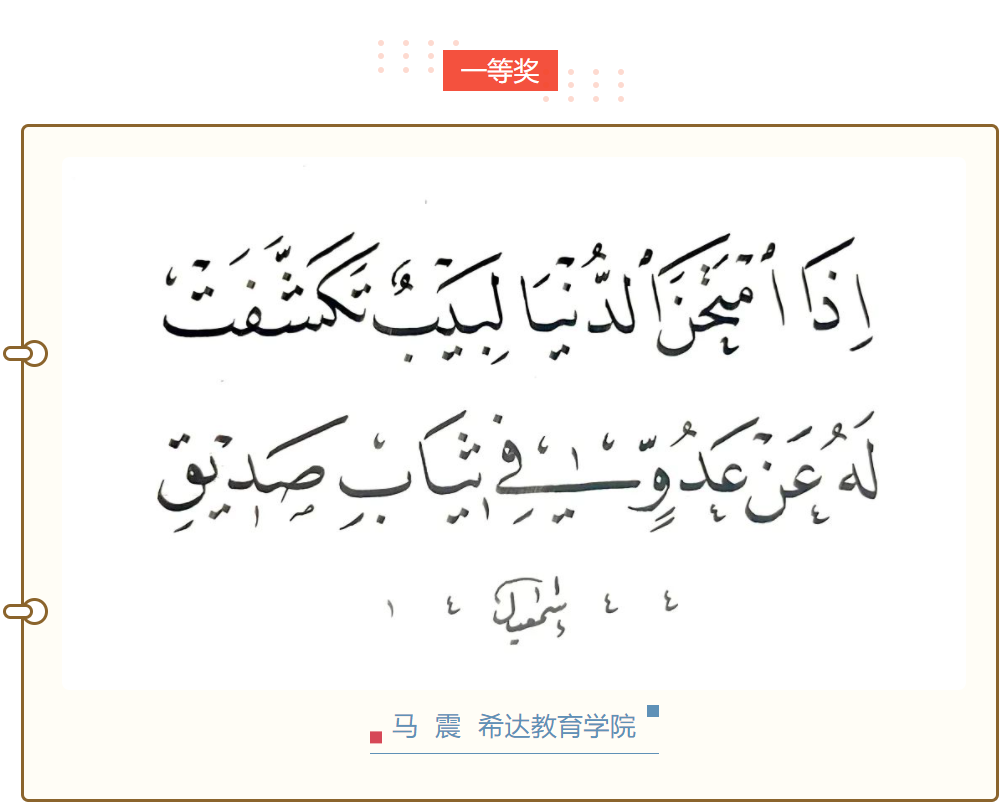 一等奖
اِذَا امْتَحَنَ الدُّنْيَا لَبِيَبٌ تَكَشَّفَتْ
لَهُ عَنْ عَدُوٍّ فِي ثِيَابِ صَدِيْقِ
١ ٤ إسمعيل ٤ ٤
马 震 希达教育学院